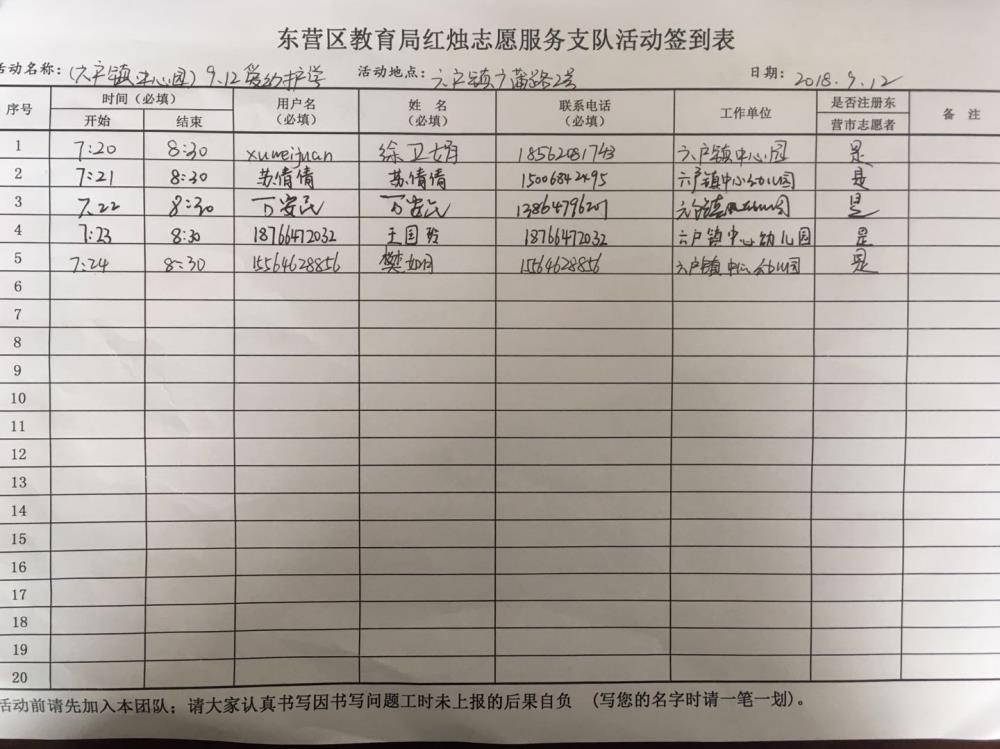 东营区教育局红烛志愿服务支队活动签到表
活动名称：(六户镇中心园) 9.12爱幼护学 活动地点：六户镇广蒲路2号 日期：2018.9.12
序号 时间（必填） 用户名（必填） 姓 名（必填） 联系电话（必填） 工作单位 是否注册东营市志愿者 备 注
开始 结束
1 7:20 8:30 xuweijuan 徐卫娟 18562081743 六户镇中心园 是
2 7:21 8:30 苏倩倩 苏倩倩 15006842495 六户镇中心幼儿园 是
3 7:22 8:30 万安民 万安民 13864796201 六户镇中心幼儿园 是
4 7:23 8:30 18766472032 王国玲 18766472032 六户镇中心幼儿园 是
5 7:24 8:30 15564628856 樊如月 15564628856 六户镇中心幼儿园 是
6
7
8
9
10
11
12
13
14
15
16
17
18
19
20
活动前请先加入本团队；请大家认真书写因书写问题工时未上报的后果自负 (写您的名字时请一笔一划)。